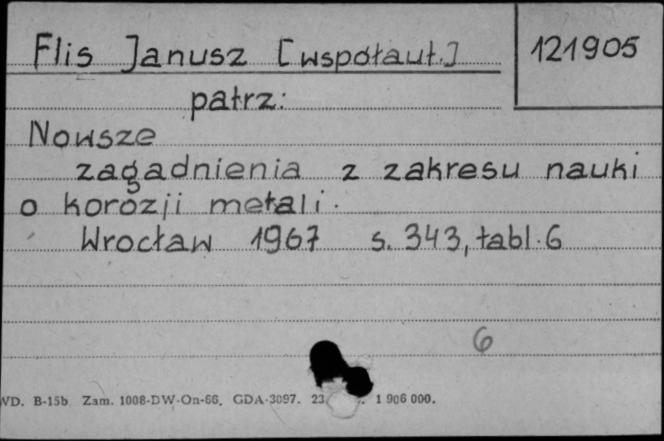 Flis Janusz [współaut.] 121905
patrz:
Nowsze
zagadnienia z zakresu nauki
o korozji metali.
Wrocław 1967 s. 343, tabl. 6
6
WD. B-15b Zam. 1008-DW-On-66. GDA-3097. 23 1 906 000.